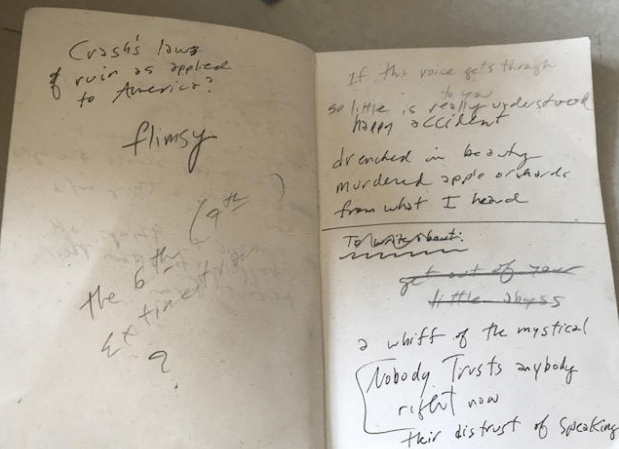 Crash's laws
of ruin as applied
to America?
flimsy
(9th )
the 6th
Extinction
?
If this voice gets through
to you
so little is really understood
happy accident
drenched in beauty
murdered apple orchards
from what I heard
To write about:
get out of your
little abyss
a whiff of the mystical
Nobody Trusts anybody
right now
their distrust of speaking